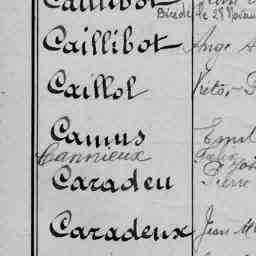 Caillibot
le 28 Novem
Caillibot Ange
Caillol Victor
Camus Emil
Cannieux
Caradeu Pierre
Caradeux Jean M